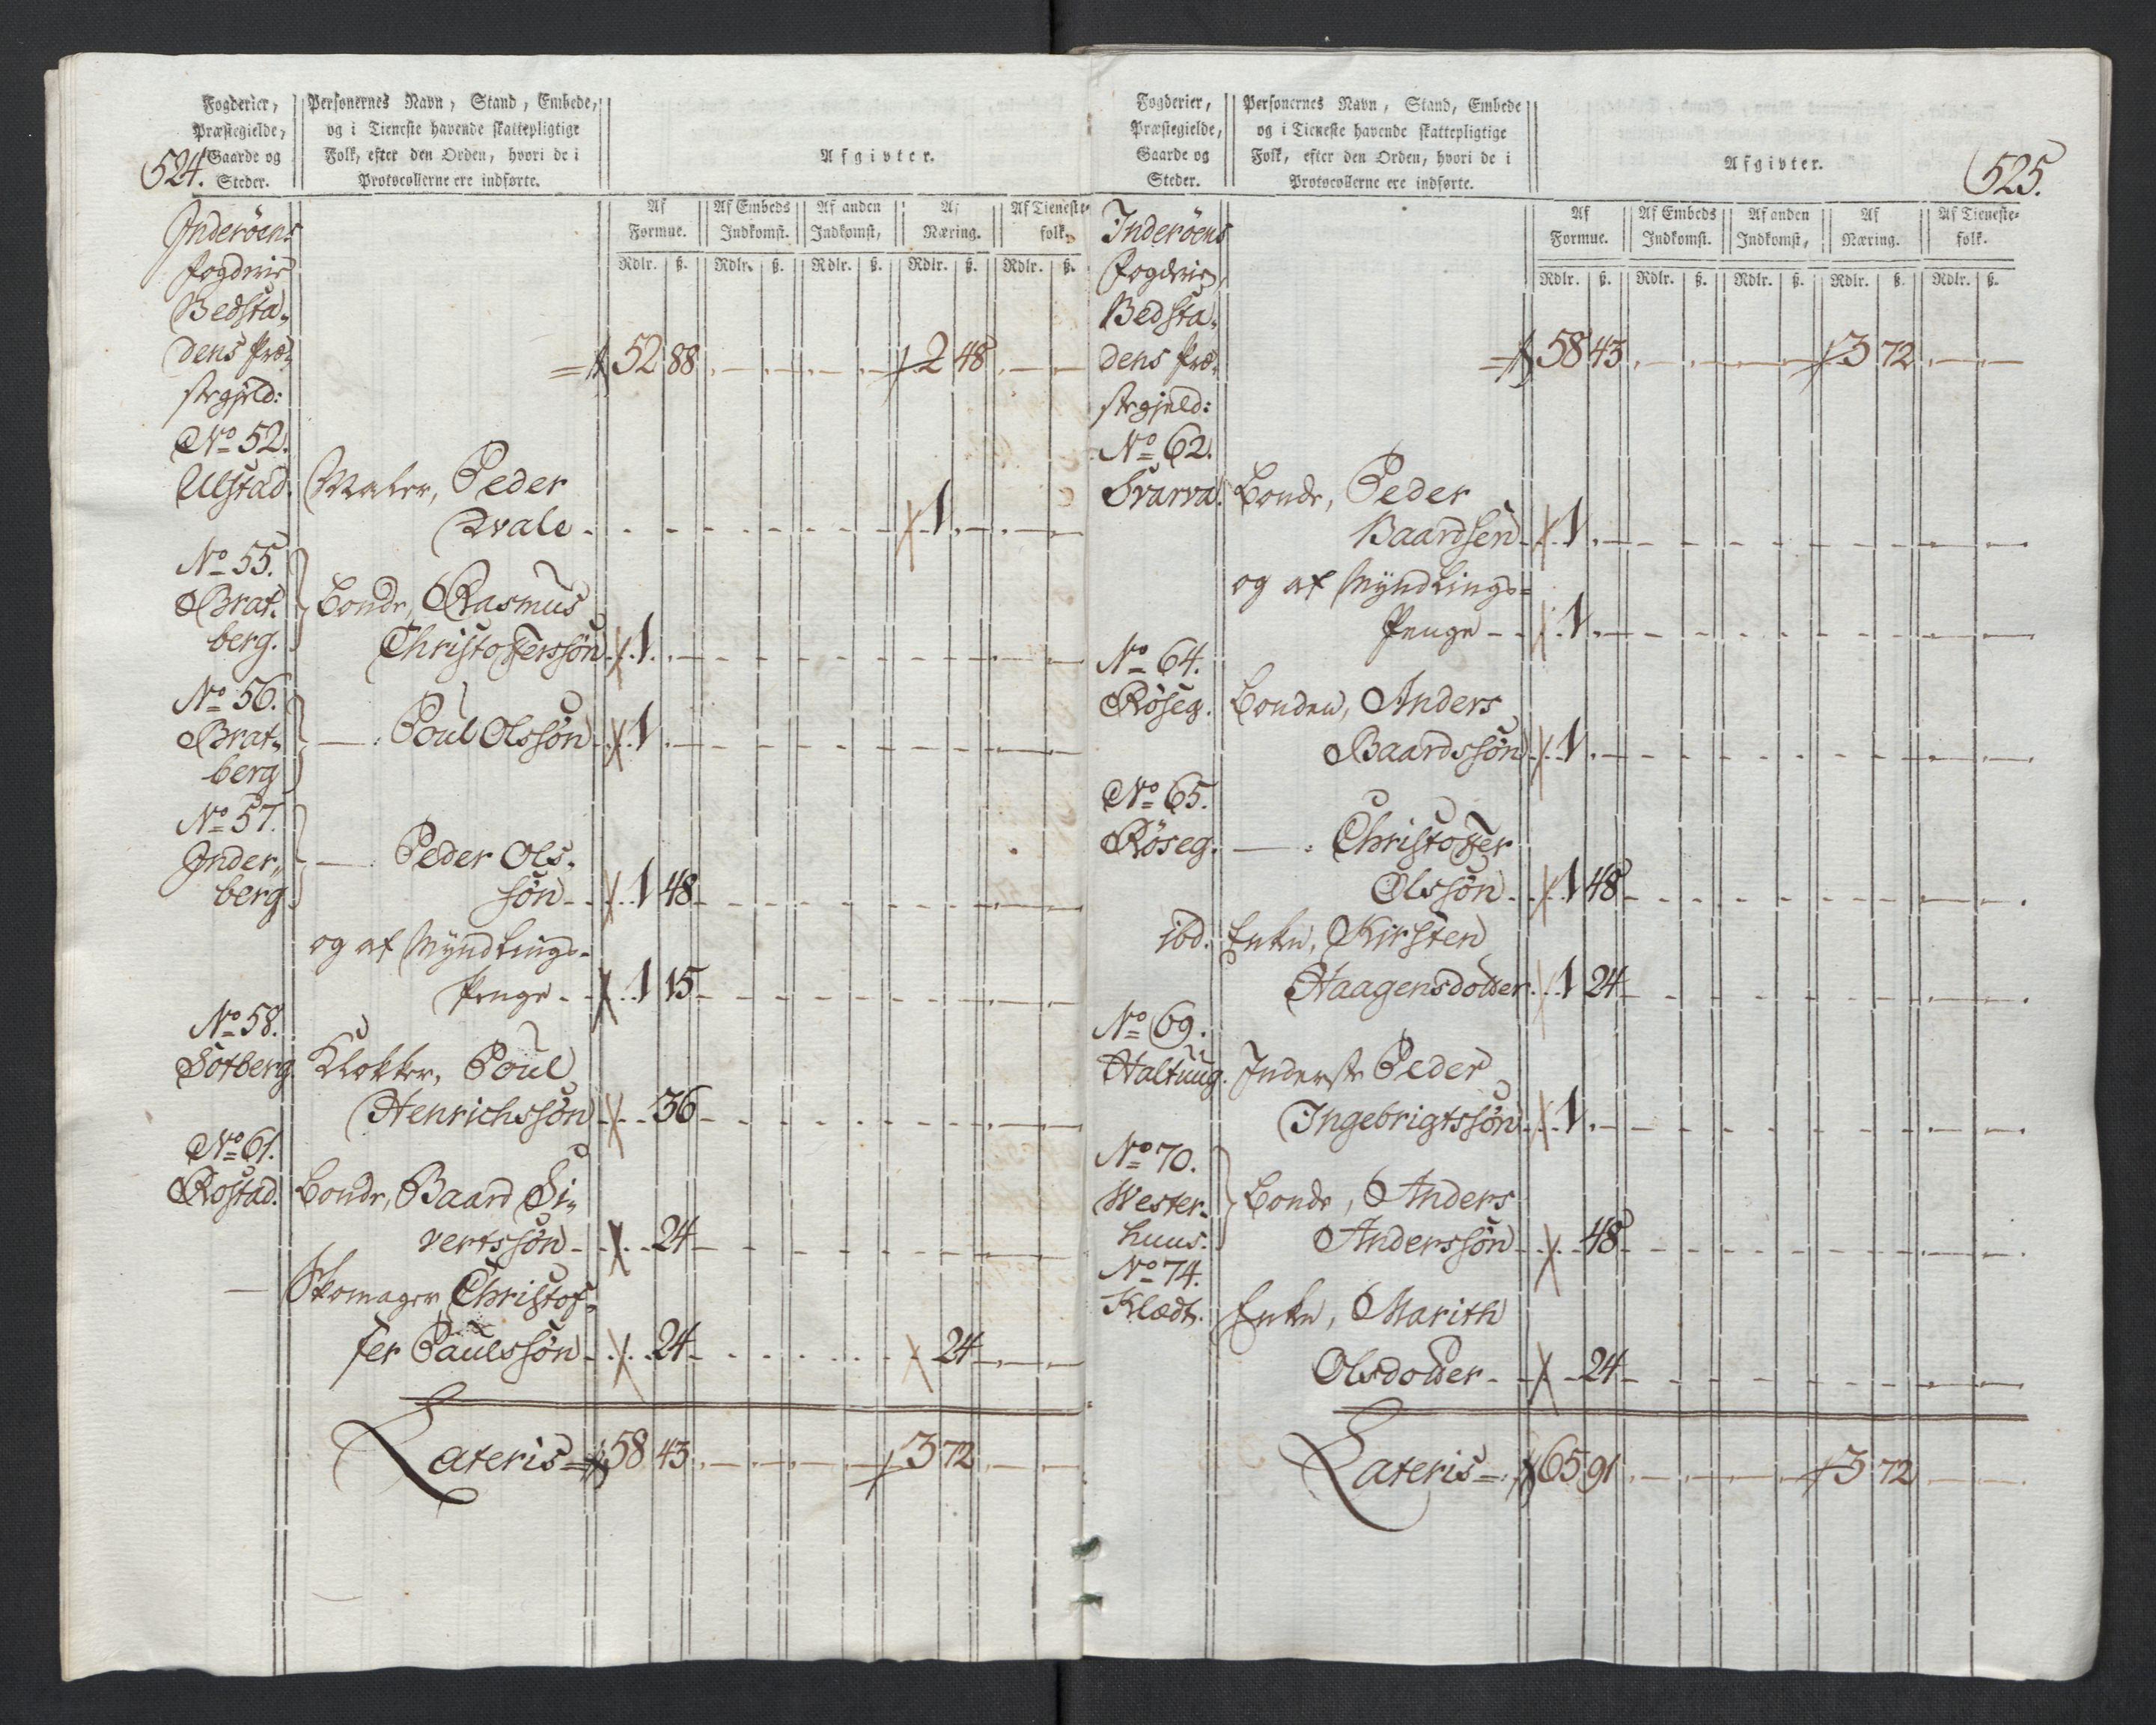 524.
Fogderier,
Præstegielde,
Gaarde og
Steder.
Personernes Navn, Stand, Embede,
og i Tieneste havende skattepligtige
Folk, efter den Orden, hvori de i
Protocollerne ere indførte.
Afgivter.
Af Formue. Af Embeds Indkomst. Af anden Indkomst, Af Næring. Af Tieneste folk.
Rdlr. ß. Rdlr. ß. Rdlr. ß. Rdlr. ß. Rdlr. ß.
Inderöens
Fogderie
Bedsta„
dens Præ„ 52 88 2 48
stegjeld:
No 52.
Ulstad. Maler, Peder
Qvale 1
No 55.
Brat„ Bonde, Rasmus
berg. Christofferssön 1
No 56.
Brat„ — : Poul Olssön 1
berg
No 57.
Inder„ — : Peder Ols„
berg sön 1 48
og af Myndlings-
Penge 1 15
No 58.
Sotberg. Klokker, Poul
Henrichssön 36
No 61.
Rostad. Bonde, Baard Si„
vertssön 24
— Skomager Christof„
fer Paulssön 24 24
Lateris = 58 43 3 72
525.
Fogderier,
Præstegielde,
Gaarde og
Steder.
Personernes Navn, Stand, Embede
og i Tieneste havende skattepligtige
Folk, efter den Orden, hvori de i
Protocollerne ere indførte.
Afgivter.
Af Formue. Af Embeds Indkomst. Af anden Indkomst, Af Næring. Af Tieneste- folk.
Rdlr. ß. Rdlr. ß. Rdlr. ß. Rdlr. ß. Rdlr. ß.
Inderöens
Fogderie,
Bedsta„
dens Præ„ 58 43 3 72
stegjeld:
No 62.
Svarva. Bonde, Peder
Baardsen 1
og af Myndlings-
Penge 1
No 64.
Röseg. Bonden, Anders
Baardssön 1
No 65.
Röseg. — : Christoffer
Olssön 1 48
ibd. Enken, Kirsten
Haagensdotter 1 24
No 69.
Haltuug. Inderste Peder
Ingebrigtssön 1
No 70.
Wester„ Bonde, Anders
huus. Anderssön 48
No 74.
Klædt. Enken, Marith
Olsdotter 24
Lateris = 65 91 3 72